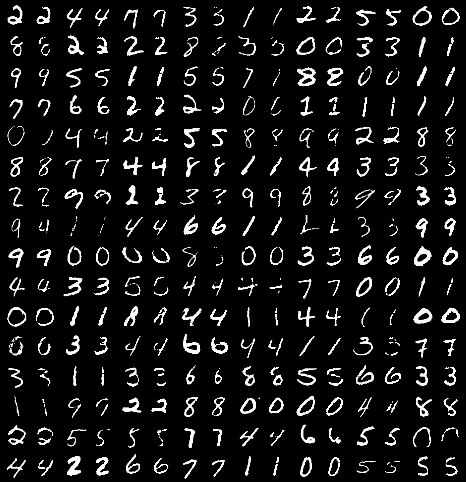 2 2 4 4 7 7 3 3 1 1 2 2 5 5 0 0
8 8 2 2 2 2 8 3 3 0 0 3 3 1 1
9 9 5 5 1 1 5 5 7 1 8 8 0 0 1 1
7 7 6 6 2 2 2 2 0 0 1 1 1 1 1 1
0 4 4 2 2 5 5 8 8 9 9 2 2 8 8
8 8 7 7 4 4 8 8 1 1 4 4 3 3 3 3
2 2 9 9 2 2 3 3 9 9 8 8 9 9 3 3
9 4 1 1 4 4 6 6 1 1 3 3 9 9
9 9 0 0 0 0 8 0 0 3 3 6 6 0 0
4 4 3 3 5 5 4 4 7 7 0 0 1 1
0 0 1 1 8 8 4 4 1 1 4 4 1 1 0 0
0 0 3 3 4 4 6 6 4 4 1 1 3 3 7 7
3 3 1 1 3 3 6 6 8 8 5 5 6 6 3 3
1 1 9 9 2 2 8 8 0 0 0 0 4 4 8 8
2 2 5 5 5 5 7 7 4 4 6 6 5 5 0
4 4 2 2 6 6 7 7 1 1 0 0 5 5 5 5